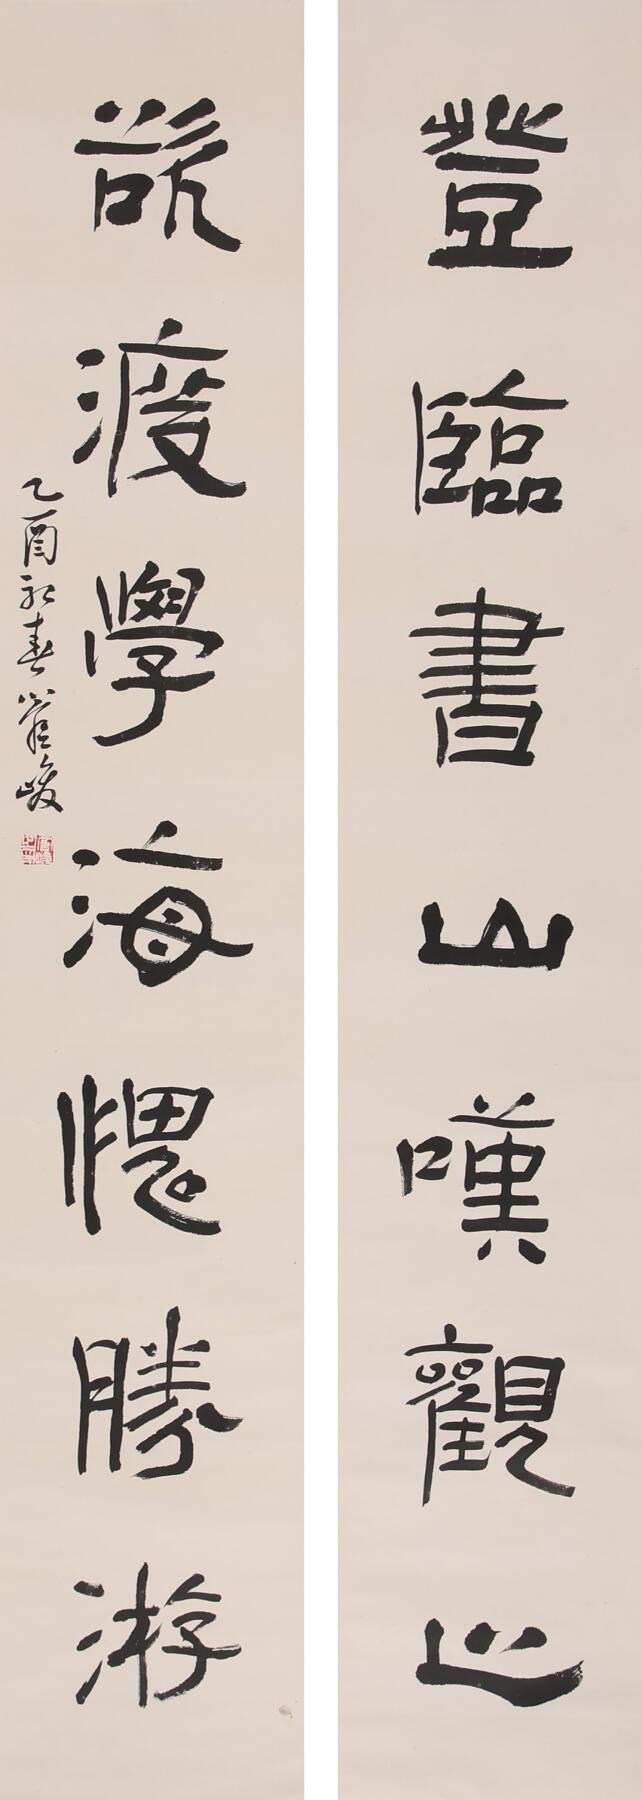 登臨書山嘆觀止
欲渡學海愧勝游
乙酉初春管峻